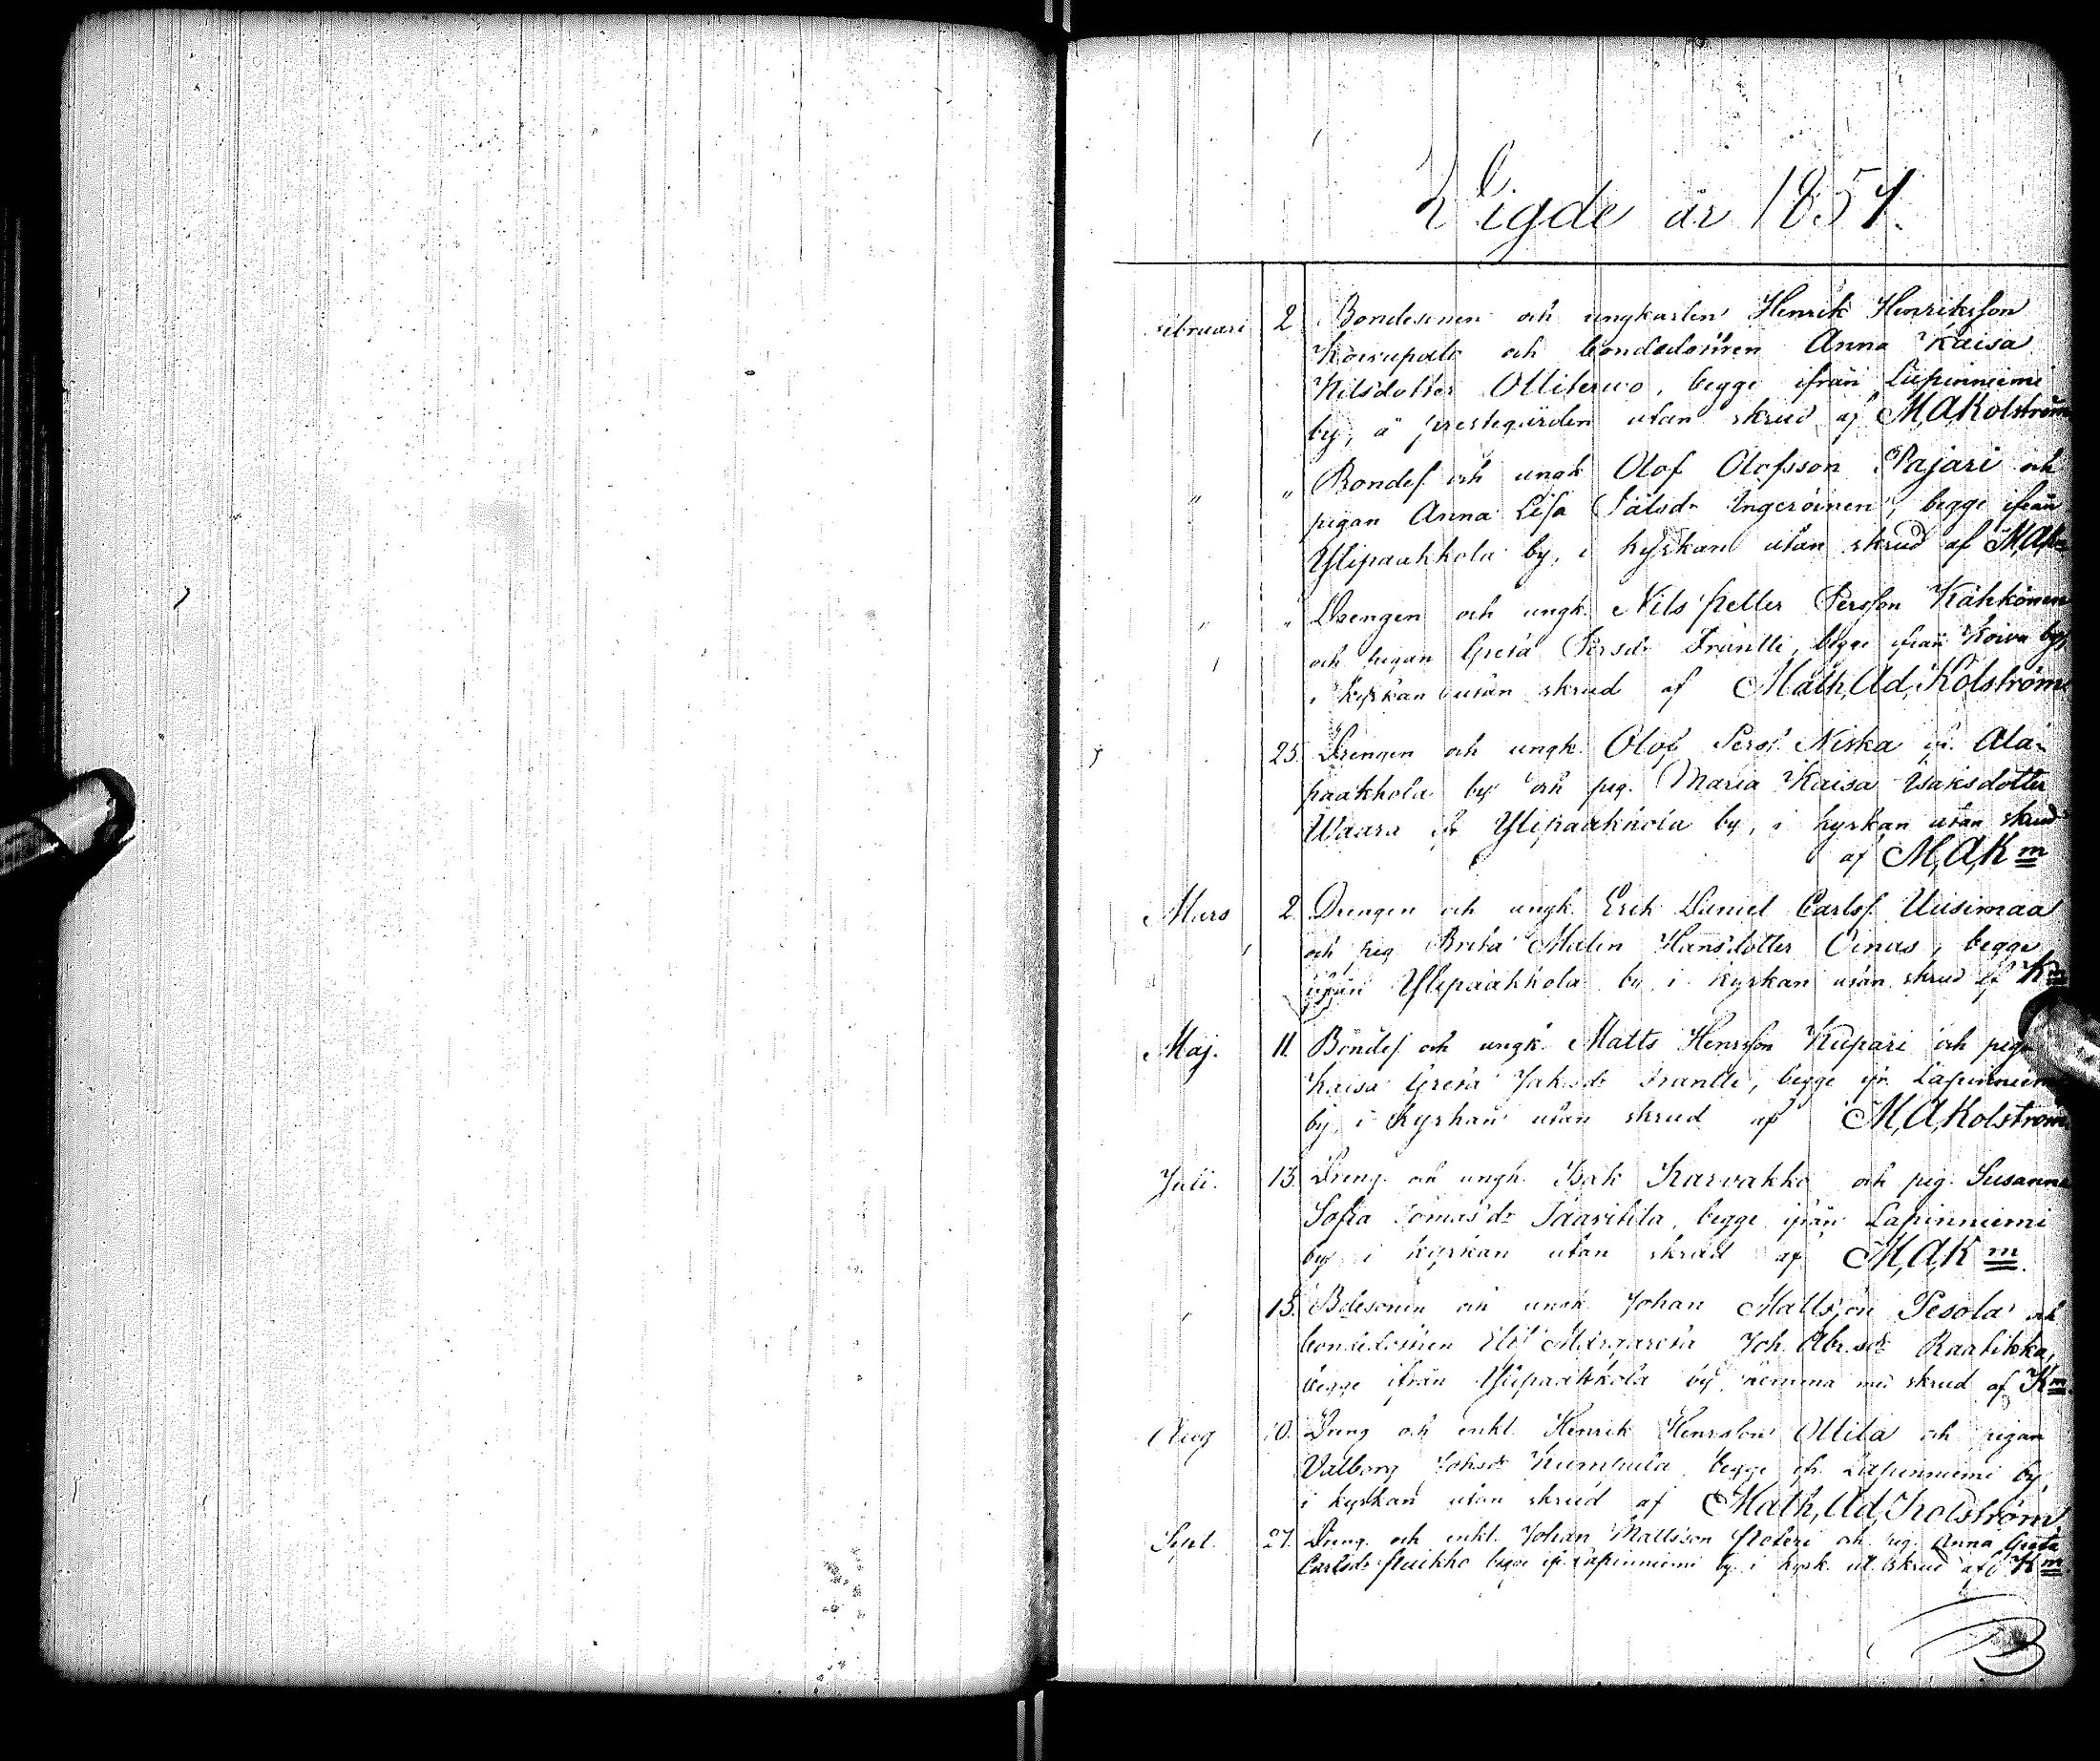 Wigde år 1851.
Februari 2 Bondesonen och ungkarlen Henrik Henriksson
och bondedottren Anna Kaisa
Nilsdotter begge ifrån Lapinniemi
by, å prestegården utan skrud af M,A,Kolström
" " Bondes. och ungk Olof Olofsson Pajari och
pigan Anna Lisa Pålsdr Ingeröinen, begge ifrån
Ylipaakkola by, i kyrkan utan skrud af
" " Drengen och ungk. Nils Petter Persson Kähkönen
och pigan Greta Persdr Frantti, begge ifrån Koiva by,
i kyrkan utan skrud af Math, Ad, Kolström
25. Drengen och ungk. Olof Perss. Niska ifr. Ala-
paakkola by och pig. Maria Kaisa Isaksdotter
Waara ifr Ylipaakkola by, i kyrkan utan skrud
af M,A,Km
Mars 2 Drengen och ungk. Erik Daniel Carlss. Uusimaa
och pig Brita Malin Hansdotter Oinas, begge
ifrån Ylipaakkola by i kyrkan utan skrud af Km
Maj. 11. Bondes. och ungk. Matts Henrsson Kupari och pigan
Kaisa Greta Jaksdr Frantti, begge ifr. Lapinniemi
by, i kyrkan utan skrud af M,A,Kolström
Juli. 13. Dreng. och ungk. Isak Karvakko och pig. Susanna
Sofia Tomasdr Taavitila, begge ifrån Lapinniemi
by i kyrkan utan skrud af M,A,Km
" 13. Bdesonen och ungk. Johan Mattsson Pesola och
bondedottren Elis Margareta Joh. Abr.sdr Raatikka,
begge ifrån Ylipaakkola by, hemma med skrud af Km
Aug 10. Dreng och enkl. Henrik Henrsson Ollila och pigan
Valborg Johsdr Kumpula, begge ifr. Lapinniemi by,
i kyrkan utan skrud af Math, Ad, Kolström
Sept. 27. Dreng. och enkl. Johan Mattsson och pig. Anna Greta
Carlsdr Puikko begge ifr Lapinniemi by i kyrk. ut. skrud af Km